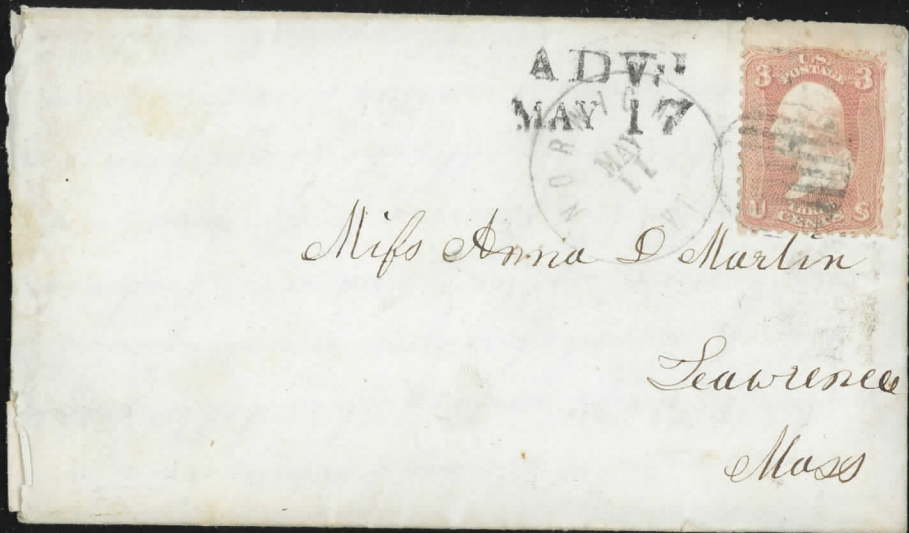 ADV.
MAY 17
NORWICH
MAY
11
3 U.S. 3
POSTAGE
THREE
U CENTS S
Miſs Anna D Martin
Lawrence
Mass